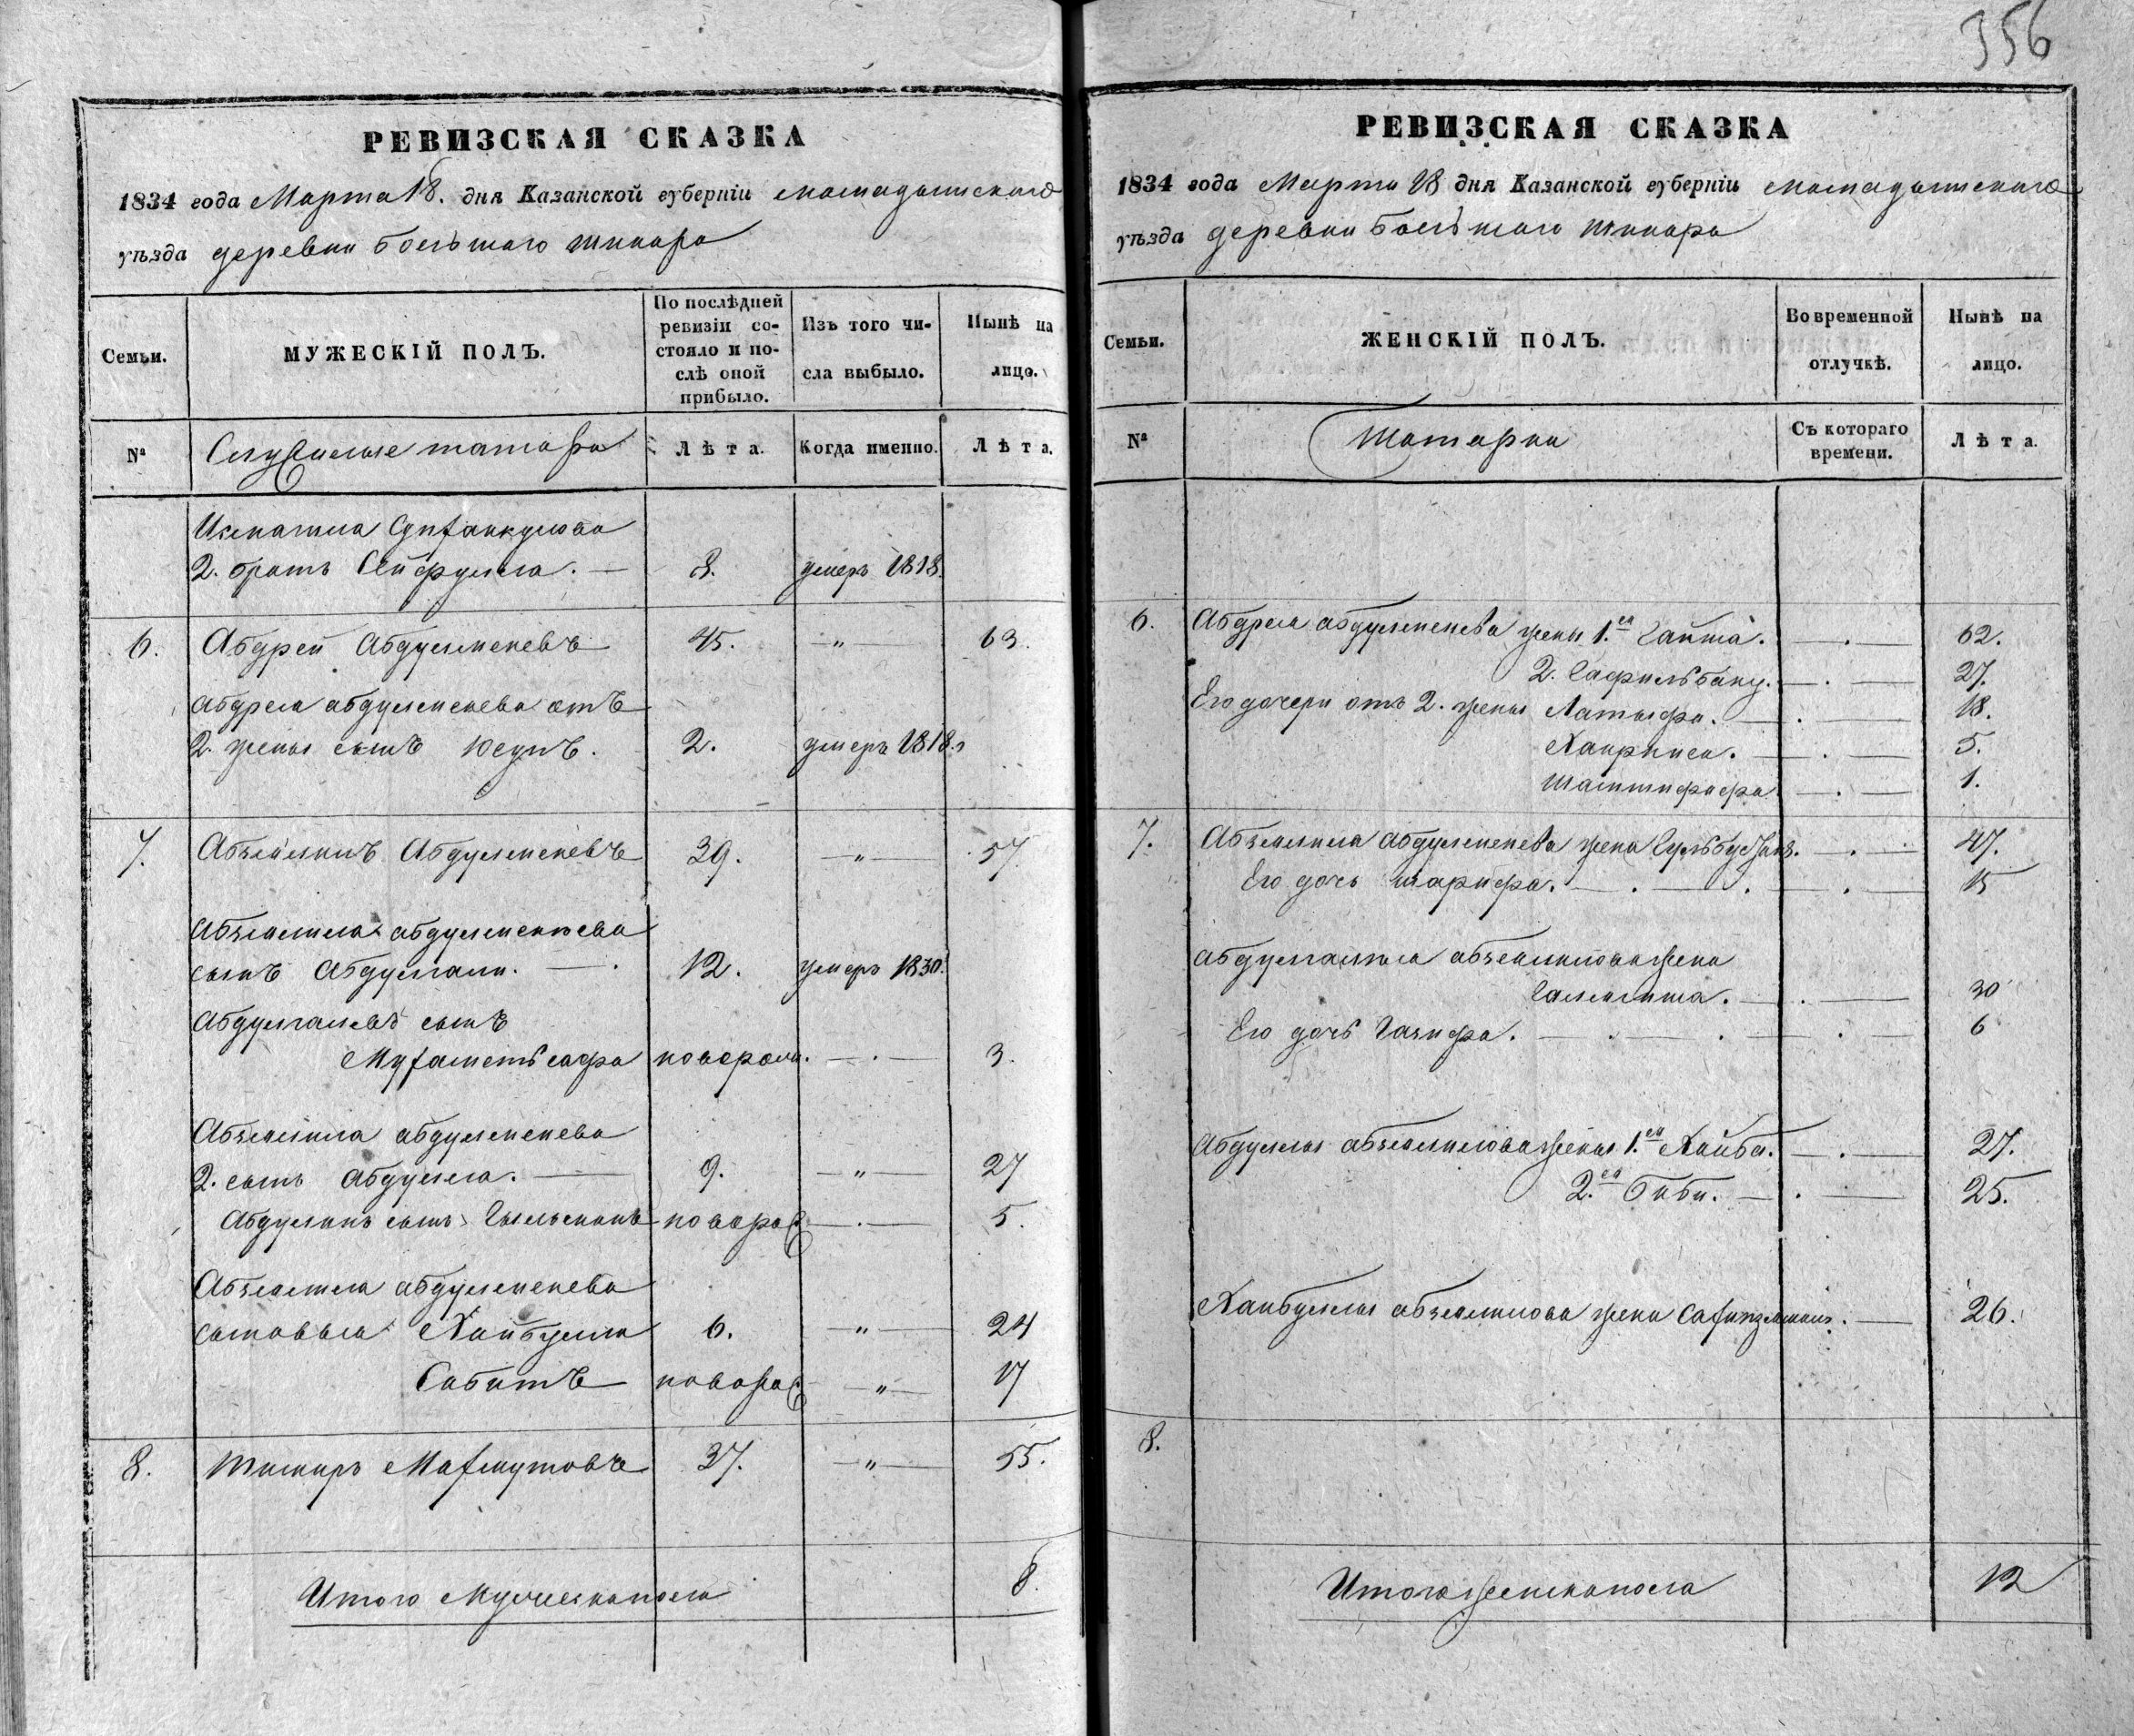 356
РЕВИЗСКАЯ СКАЗКА
1834 года Марта 18. дня Казанской губерніи мамадышскаго
уѣзда деревни Большаго Шинара
Семьи.
МУЖЕСКІЙ ПОЛЪ.
По послѣдней ревизіи со-
стояло и по-
слѣ оной
прибыло.
Изъ того чи-
сла выбыло.
Нынѣ на
лицо.
№
Служилые татара
Лѣта.
Когда именно.
Лѣта.
2. братъ Сейфулла. 8. умеръ 1818.
6. Абдрей Абдулменевъ 45. " 63.
Абдрея абдулменева отъ
2. жены сынъ Юсупъ. 2. умеръ 1818.
7. Абзелилъ Абдулменевъ 39. " 57
Абзелила абдулменева
сынъ Абдулгали. 12. умеръ 1830.
Абдулгалевъ сынъ
Мухаметъ сафа новорож. 3.
Абзелила абдулменева
2. сынъ Абдулла. 9. " 27
новорож 5.
Абзелила абдулменева
сыновья Хайбулла 6. " 24
Сабитъ новорож " 17
8. Тимиръ Махмутовъ 37. " 55.
Итого Мужеска пола 8.
РЕВИЗСКАЯ СКАЗКА
1834 года Марта 18 дня Казанской губерніи мамадышскаго
уѣзда деревни Большаго Шинара
Семьи.
ЖЕНСКІЙ ПОЛЪ.
Во временной
отлучкѣ.
Нынѣ на
лицо.
№
Татарки
Съ котораго
времени.
Лѣта.
6. Абдрея абдулменева жены 1.ая 62.
2. Сафильбану. 27.
Его дочери отъ 2. жены Латыфа. 18.
Хаирниса. 5.
1.
7. Абзелила Абдулменева жена 47.
Его дочь шарифа. 15
Абдулгалила абзелилова жена
30
Его дочь Газифа. 6
Абдуллы абзелилова жены 1.ая Хайба. 27.
2.ая Биби. 25.
Хайбуллы абзелилова жена 26.
8.
Итого женска пола 12